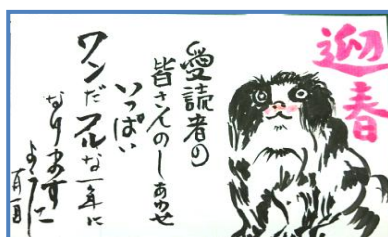 迎春
愛読者の
皆さんのしあわせ
いっぱい
ワンだフルな一年に
なりますに